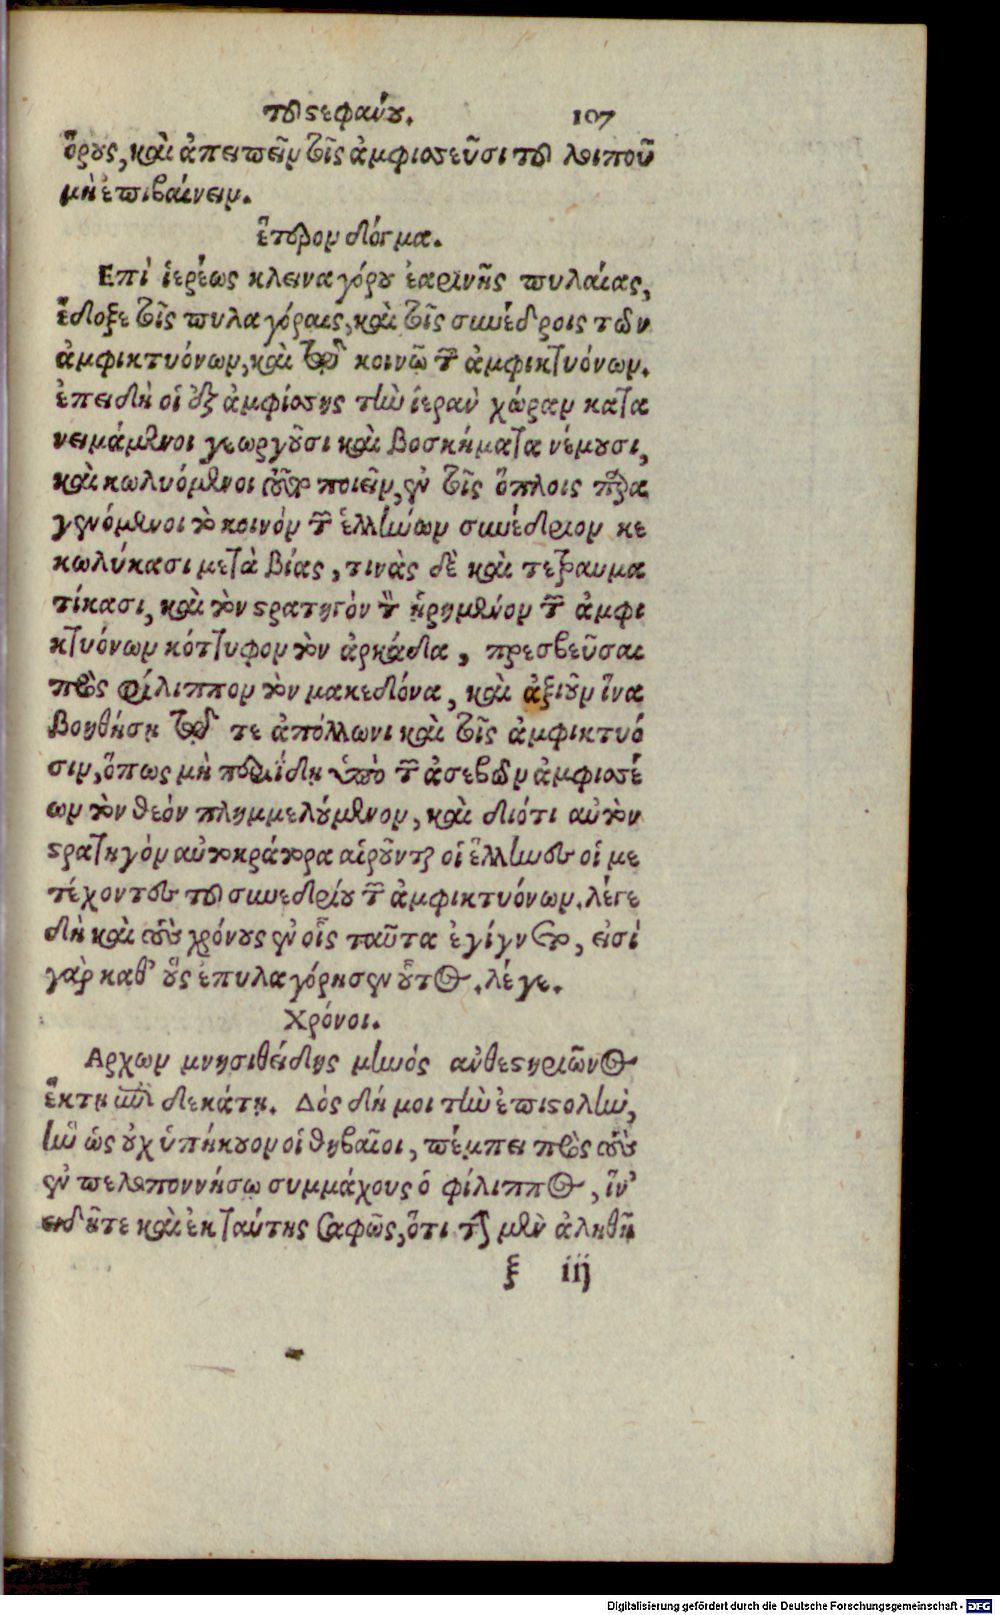 τοῦ στεφάνου. 107
ὅρους, καὶ ἀπειπεῖν τοῖς ἀμφισσεῦσι τοῦ λοιποῦ
μὴ ἐπιβαίνειν.
ἕτερον δόγμα.
Επὶ ἱερέως κλειναγόρου ἐαρινῆς πυλαίας,
ἔδοξε τοῖς πυλαγόραις, καὶ τοῖς συνέδροις τῶν
ἀμφικτυόνων, καὶ τῷ κοινῷ τῶν ἀμφικτυόνων.
ἐπειδὴ οἱ ἐξ ἀμφίσσης τὴν ἱερὰν χώραν κατα
νειμάμενοι γεωργοῦσι καὶ βοσκήματα νέμουσι,
καὶ κωλυόμενοι τοῦτο ποιεῖν, ἐν τοῖς ὅπλοις παρα
γενόμενοι τὸ κοινὸν τῶν ἑλλήνων συνέδριον κε
κωλύκασι μετὰ βίας, τινὰς δὲ καὶ τετραυμα
τίκασι, καὶ τὸν στρατηγὸν τὸν ᾑρημένον τῶν ἀμφι
κτυόνων κότυφον τὸν ἀρκάδα, πρεσβεῦσαι
πρὸς φίλιππον τὸν μακεδόνα, καὶ ἀξιοῦν ἵνα
βοηθήση τῷ τε ἀπόλλωνι καὶ τοῖς ἀμφικτυό
σιν, ὅπως μὴ περιΐδη ὑπὸ τῶν ἀσεβῶν ἀμφισσέ
ων τὸν θεὸν πλημμελούμενον, καὶ διότι αὐτὸν
στρατηγὸν αὐτοκράτορα αἱροῦνται οἱ ἕλληνες οἱ με
τέχοντες τοῦ συνεδρίου τῶν ἀμφικτυόνων. λέγε
δὴ καὶ τοὺς χρόνους ἐν οἷς ταῦτα ἐγίγνετο, εἰσὶ
γὰρ καθ' οὓς ἐπυλαγόρησεν οὗτος. λέγε.
Χρόνοι.
Αρχων μνησιθείδης μηνὸς ἀνθεστηριῶνος
ἕκτη ἐπὶ δεκάτη. Δὸς δή μοι τὴν ἐπιστολὴν,
ἣν ὡς οὐχ ὑπήκουον οἱ θηβαῖοι, πέμπει πρὸς τοὺς
ἐν πελοποννήσω συμμάχους ὁ φίλιππος, ἵν'
εἰδῆτε καὶ ἐκ ταύτης σαφῶς, ὅτι τὴν μὲν ἀληθῆ
ξ iij
Digitalisierung gefördert durch die Deutsche Forschungsgemeinschaft - DFG